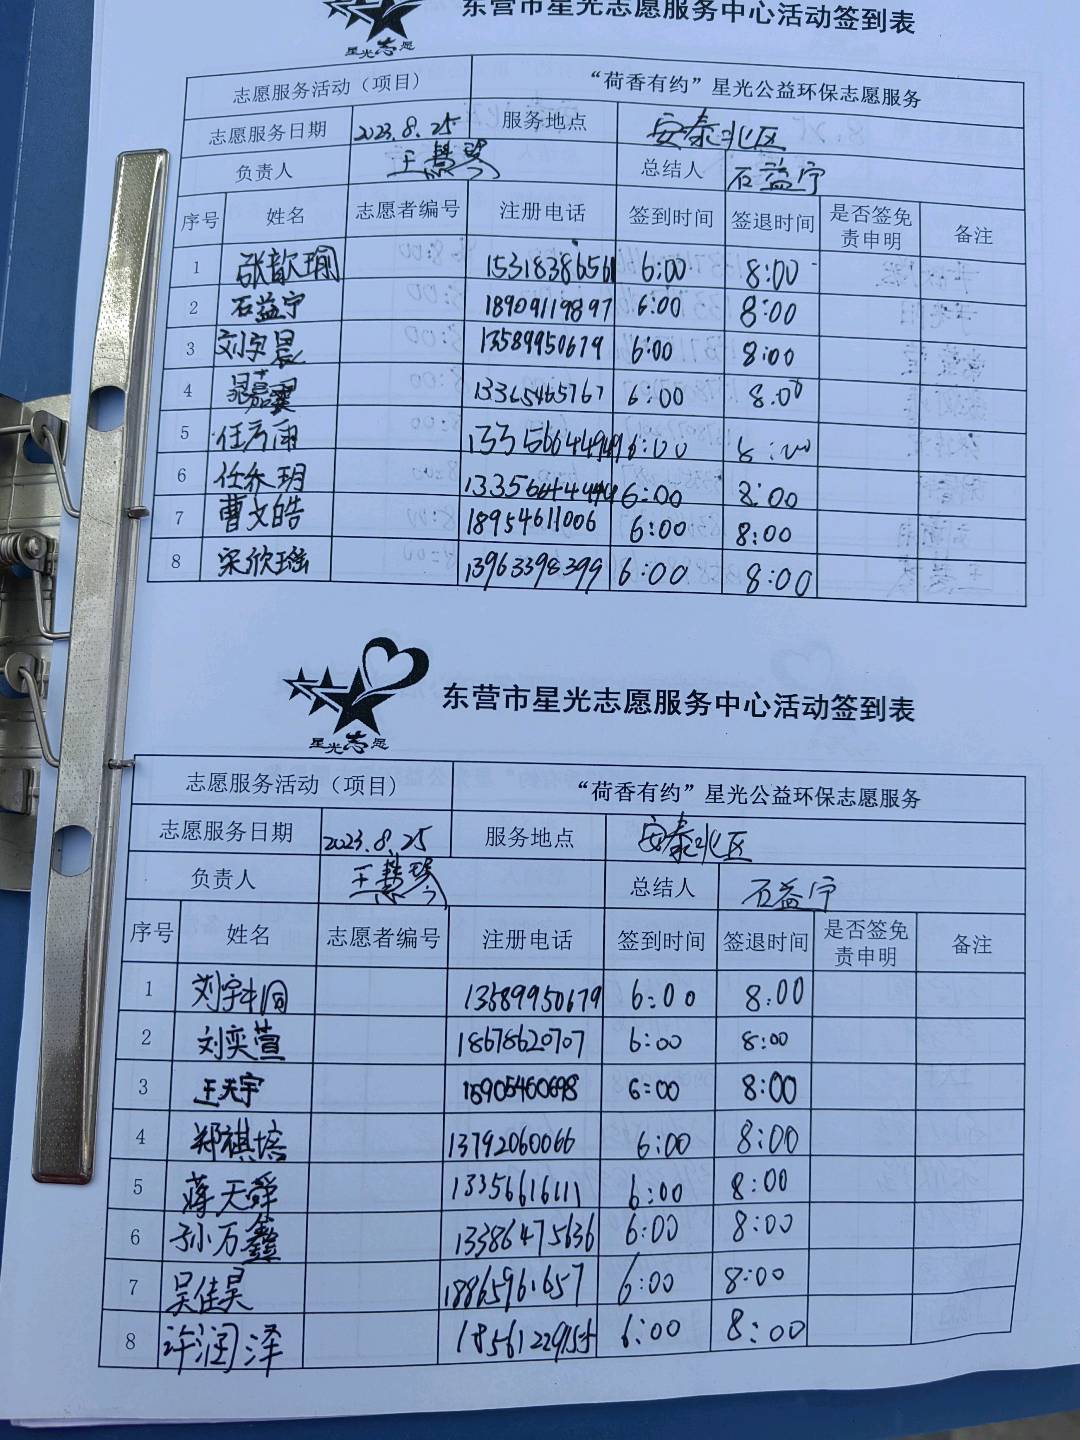 东营市星光志愿服务中心活动签到表
星光志愿
志愿服务活动（项目） “荷香有约”星光公益环保志愿服务
志愿服务日期 2023.8.25 服务地点 安泰北区
负责人 王慧琴 总结人 石益宁
序号 姓名 志愿者编号 注册电话 签到时间 签退时间 是否签免责申明 备注
1 张歆瑜 15318386561 6:00 8:00
2 石益宁 18909119897 6:00 8:00
3 刘宇晨 13589950679 6:00 8:00
4 13365465767 6:00 8:00
5 任芳雨 6:00 8:00
6 任乔玥 6:00 8:00
7 曹文皓 18954611006 6:00 8:00
8 宋欣瑶 13963398399 6:00 8:00
东营市星光志愿服务中心活动签到表
星光志愿
志愿服务活动（项目） “荷香有约”星光公益环保志愿服务
志愿服务日期 2023.8.25 服务地点 安泰北区
负责人 王慧琴 总结人 石益宁
序号 姓名 志愿者编号 注册电话 签到时间 签退时间 是否签免责申明 备注
1 刘宇桐 13589950679 6:00 8:00
2 刘奕萱 18678620707 6:00 8:00
3 王天宇 18905460698 6:00 8:00
4 郑祺培 13792060066 6:00 8:00
5 蒋天舜 13356616111 6:00 8:00
6 孙万鑫 13386475636 6:00 8:00
7 吴佳昊 18865961657 6:00 8:00
8 许润泽 6:00 8:00